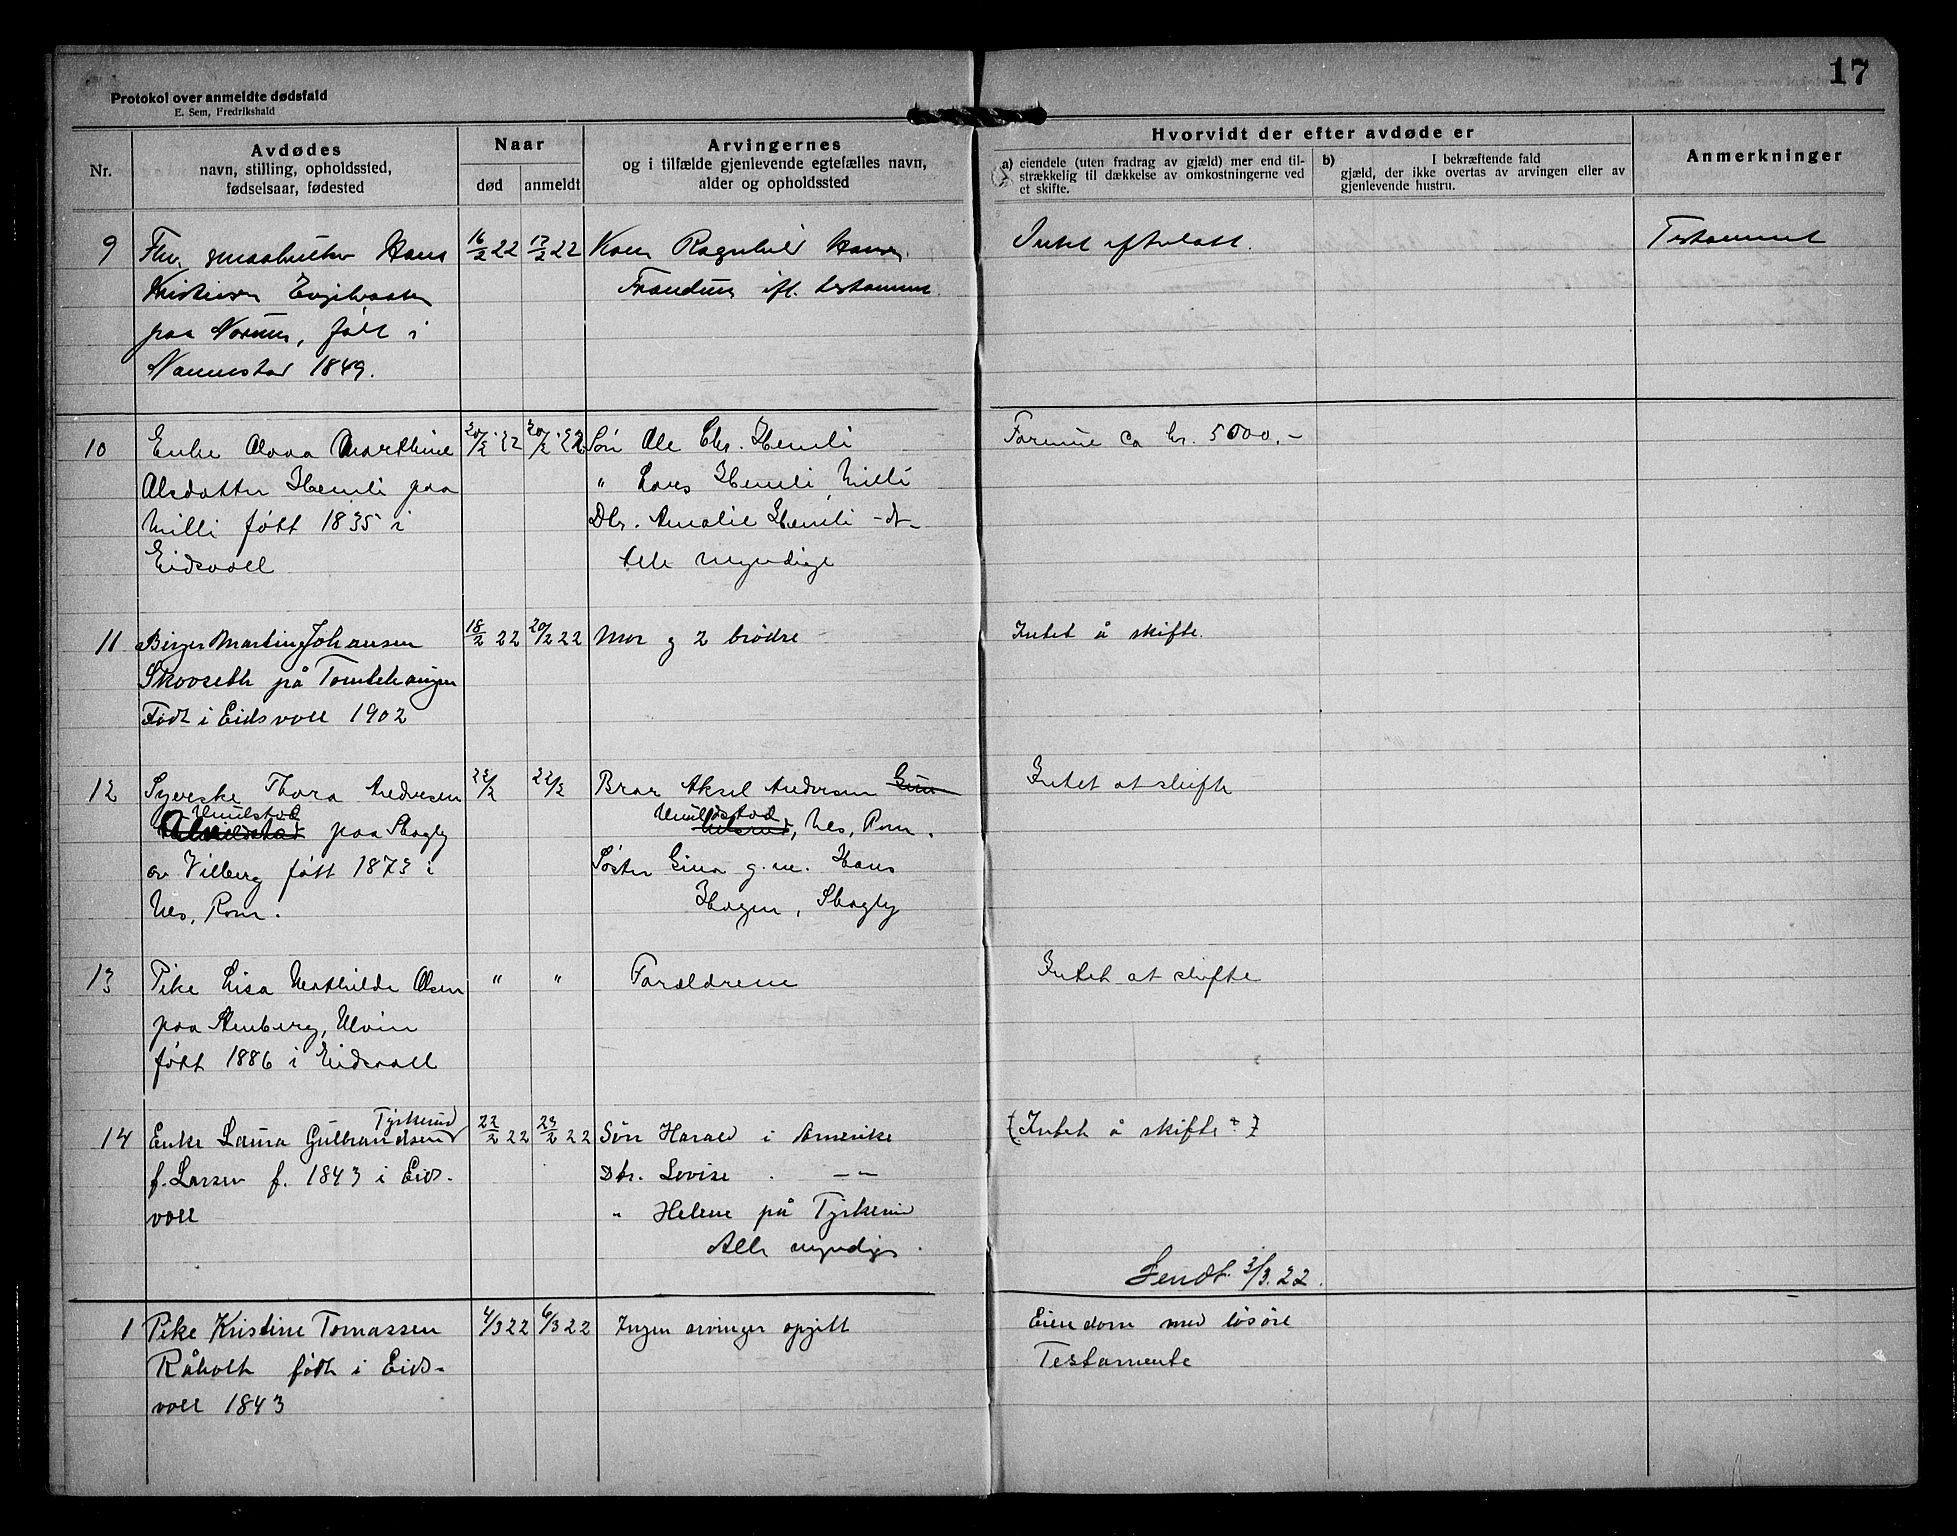 17
Protokol over anmeldte dødsfald
E. Sem, Fredrikshald
Nr.
Avdødes
navn, stilling, opholdssted,
fødselsaar, fødested
Naar
død
anmeldt
Arvingernes
og i tilfælde gjenlevende egtefælles navn,
alder og opholdssted
Hvorvidt der efter avdøde er
a) eiendele (uten fradrag av gjæld) mer end til-
strækkelig til dækkelse av omkostningerne ved
et skifte.
b) I bekræftende fald
gjæld, der ikke overtas av arvingen eller av
gjenlevende hustru.
Anmerkninger
9 Fhv. smaabruker Hans 16/2 22 17/2 22 Ragnhild Hansen Intet efterlatt. Testament
Kristiansen
paa født i ifl. testament.
Nannestad 1849.
10 Enke Marthine 20/2 22 20/2 22 Søn Ole Chr. Hemli Formue ca kr. 5000.-
Olsdatter Hemli paa " Lars Hemli Milli
Milli født 1835 i Dtr. Amalie Hemli -"-
Eidsvoll Alle myndige
11 Birger Martin Johansen 18/2 22 20/2 22 Mor og 2 brødre Intet å skifte.
Skovseth på Tomtehaugen
Født i Eidsvoll 1902
12 Syerske Thora Andresen 22/2 22/2 Bror Aksel Andersen Intet at skifte
Huulstad paa Skogly Huulstad, Nes, Rom.
av Vilberg født 1873 i Søster Gina g.m. Hans
Nes, Rom. Hagen, Skogly
13 Pike Lisa Mathilde Olsen " " Forældrene Intet at skifte
paa Stenberg, Ulvin
født 1886 i Eidsvoll
Tyskerud
14 Enke Laura Gulbrandsen 22/2 22 23/2 22 Søn Harald i Amerika (Intet å skifte)
f. Larsen f. 1843 i Eids- Dtr. Lovise -"-
voll " Helene på Tyskerud
Alle myndige.
Sendt 3/3.22.
1 Pike Kristine Tomassen 4/3 22 6/3 22 Ingen arvinger opgitt Eiendom med løsøre
Råholt født i Eids- Testamente
voll 1843